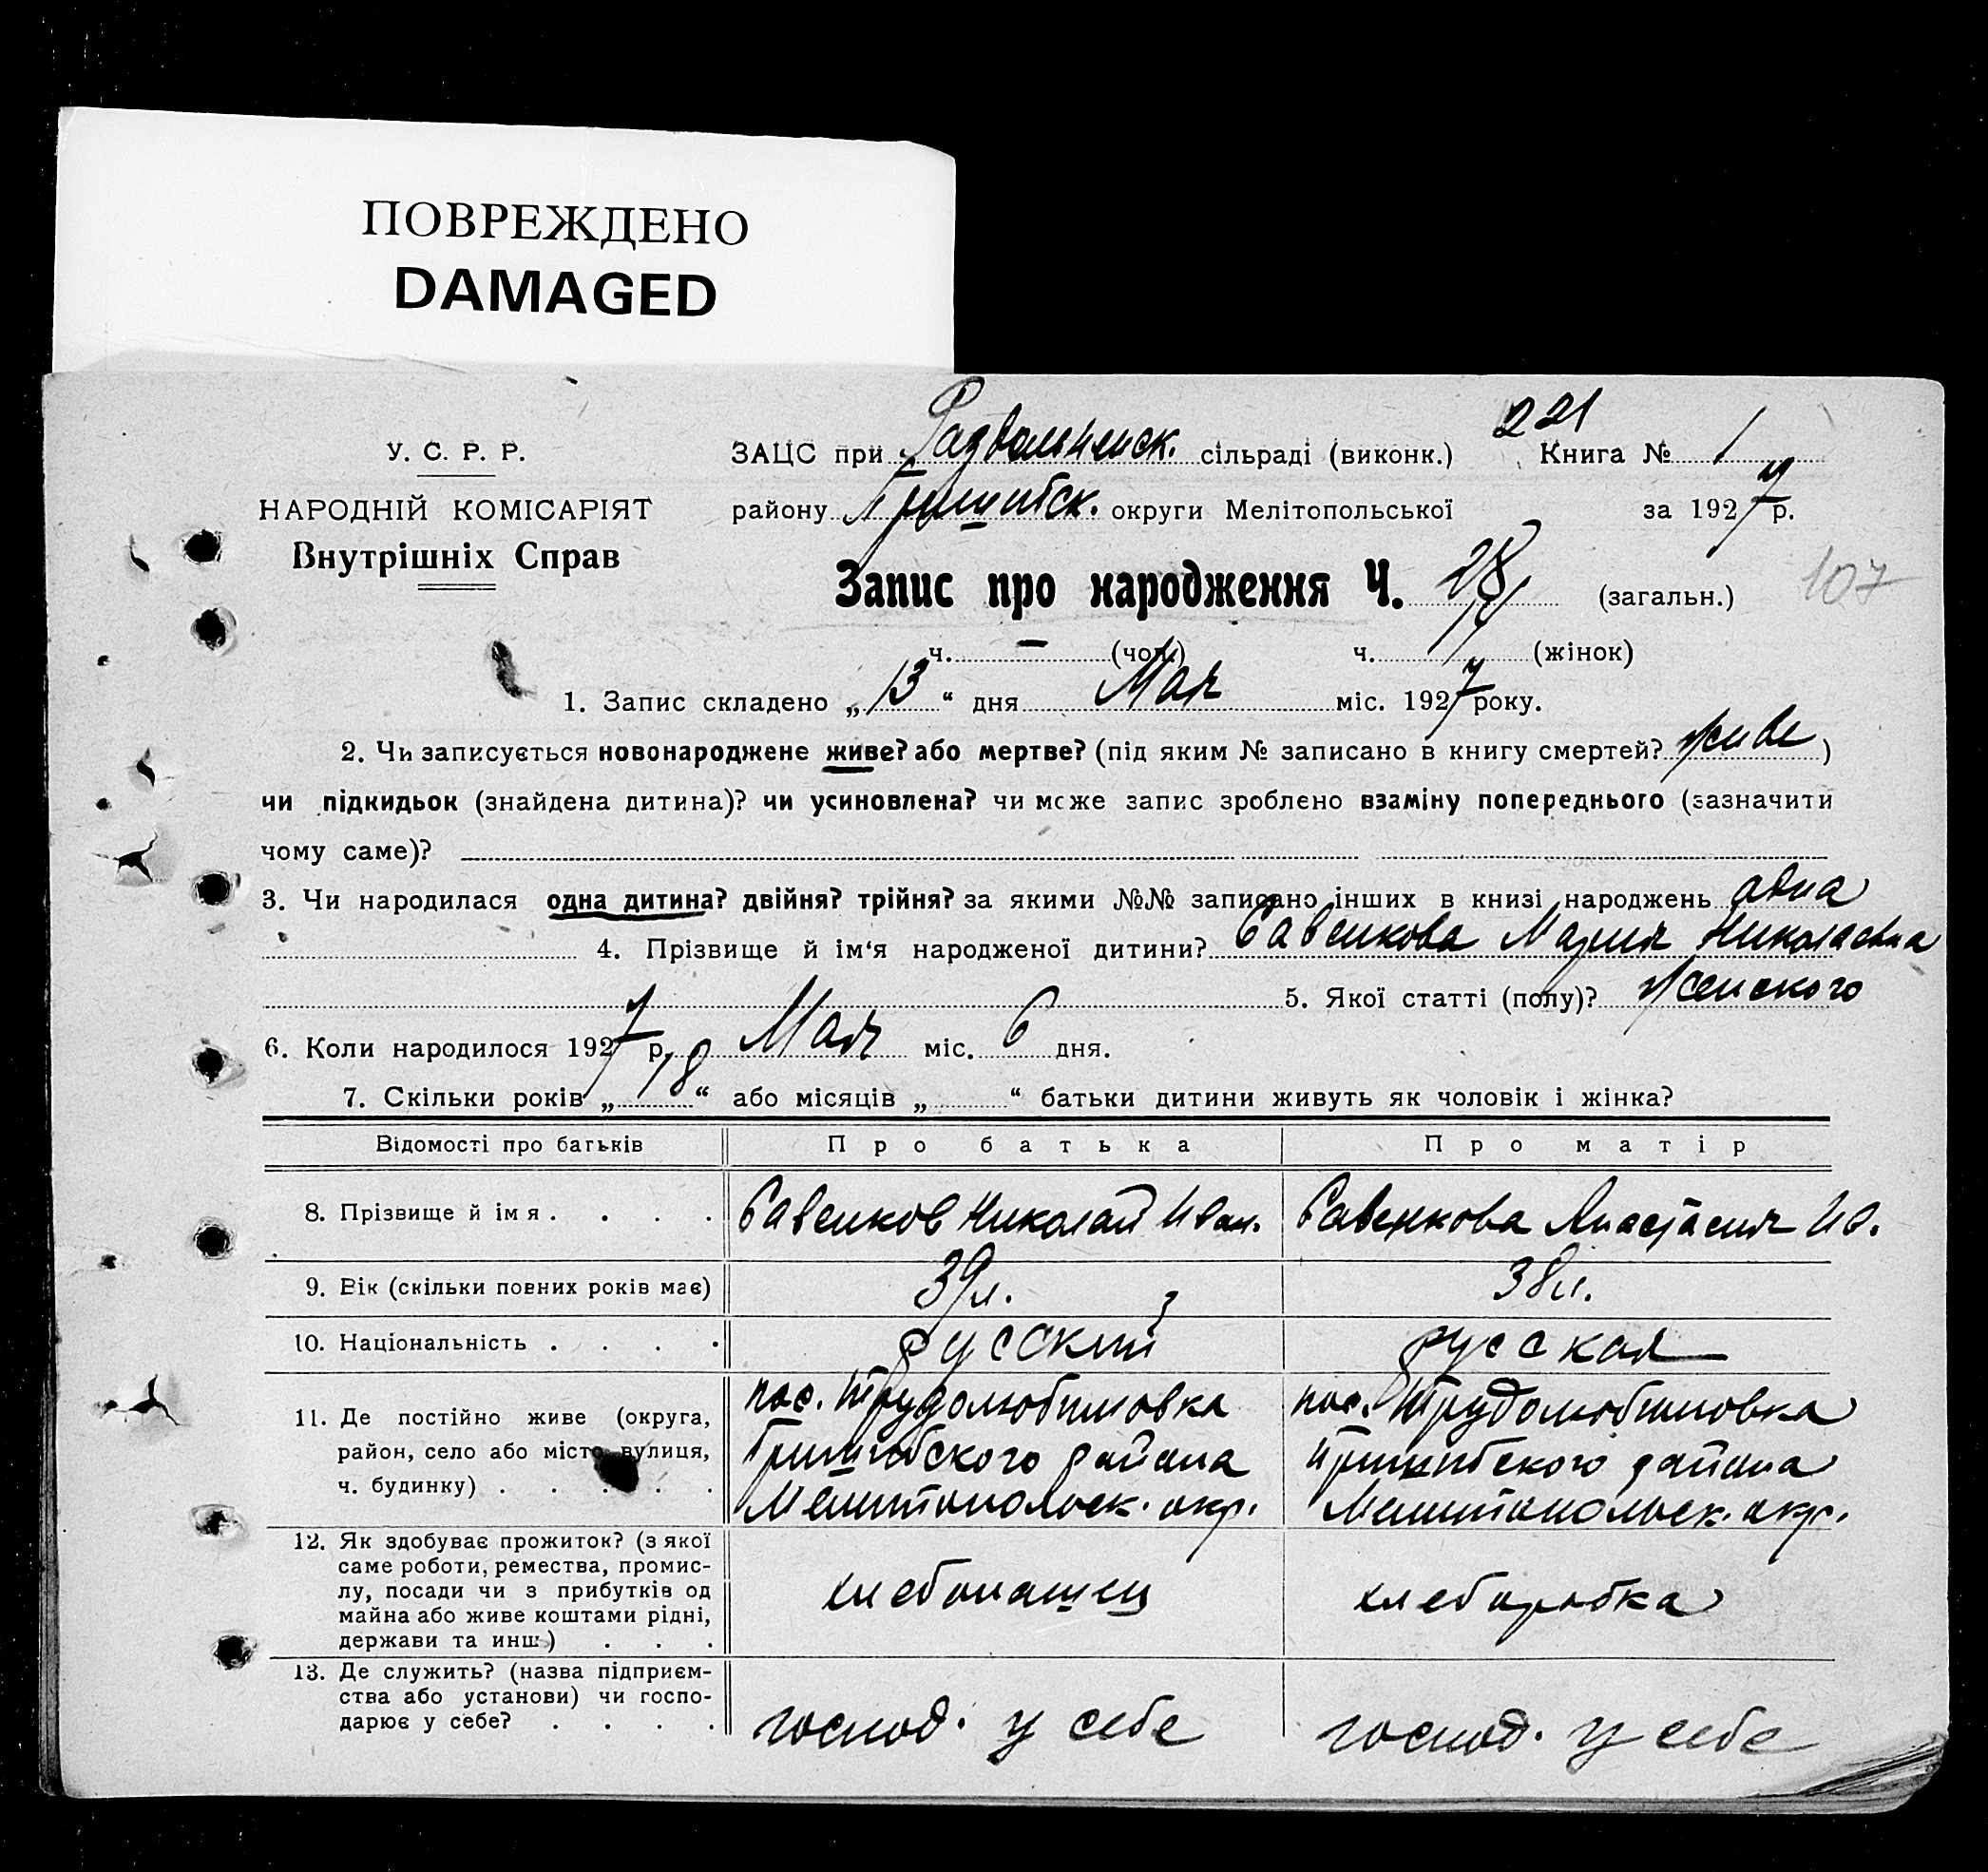 ПОВРЕЖДЕНО
DAMAGED
221
У. С. Р. Р.
ЗАЦС при Раздольненск. сільраді (виконк.) Книга № 1
НАРОДНІЙ КОМІСАРІЯТ
району Пришибск. округи Мелітопольської за 1927 р.
Внутрішніх Справ
Запис про народження Ч. 28 (загальн.) 107
ч. — (чол.) ч. (жінок)
1. Запис складено „ 13 “ дня Мая міс. 1927 року.
2. Чи записується новонароджене живе? або мертве? (під яким № записано в книгу смертей? живе )
чи підкидьок (знайдена дитина)? чи усиновлена? чи може запис зроблено взаміну попереднього (зазначити
чому саме)?
3. Чи народилася одна дитина? двійня? трійня? за якими №№ записано інших в книзі народжень одна
4. Прізвище й ім‘я народженої дитини? Савенкова Мария Николаевна
5. Якої статті (полу)? женского
6. Коли народилося 1927 р. Мая міс. 6 дня.
7. Скільки років „ 18 “ або місяців „ “ батьки дитини живуть як чоловік і жінка?
Відомості про батьків Про батька Про матір
8. Прізвище й імя . . . . Савенков Николай Иван. Савенкова Анастасия Ив.
9. Вік (скільки повних років має) 39 л. 38 л.
10. Національність . . . . русский русская
11. Де постійно живе (округа, пос. Трудолюбимовка пос. Трудолюбимовка
район, село або місто, вулиця, Пришибского района Пришибского района
ч. будинку) . . . . . Мелитопольск. окр. Мелитопольск. окр.
12. Як здобуває прожиток? (з якої
саме роботи, ремества, промис-
лу, посади чи з прибутків од хлебопашец хлеборобка
майна або живе коштами рідні,
держави та инш.) . . .
13. Де служить? (назва підприєм-
ства або установи) чи госпо-
дарює у себе? . . . . господ. у себе господ. у себе